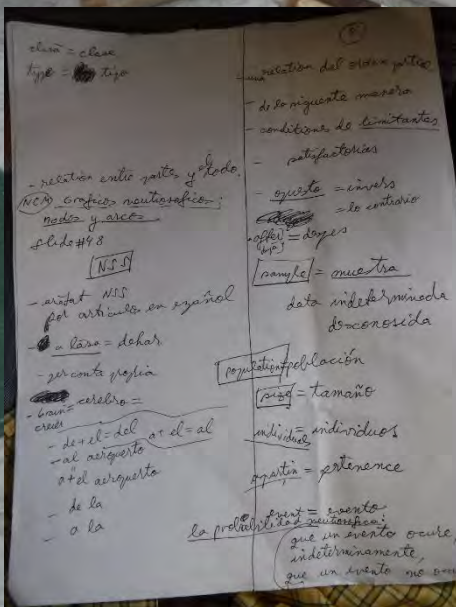 clasă = clase
type = tipo
- relation entre partes y el todo
NCM Graficos neutrosoficos:
nodos y arcos
slide #48
NSS
- arătat NSS
por articulos en español
- a lăsa = dehar
- per conta propia
- brain = cerebro =
creier
- de + el = del a + el = al
- al aeropuerto
a + el aeropuerto
- de la
- a la
relation del orden partial
- de la siguente manera
- conditiones de limitantes
- satisfactorias
- opuesto = invers
= lo contrario
- offer = deges
sample = muestra
data indeterminada
desconosida
population = población
size = tamaño
individuals = individuos
apartin = pertenence
event = evento
la probabilidad neutrosofica:
que un evento ocure,
indeterminamente,
que un evento no